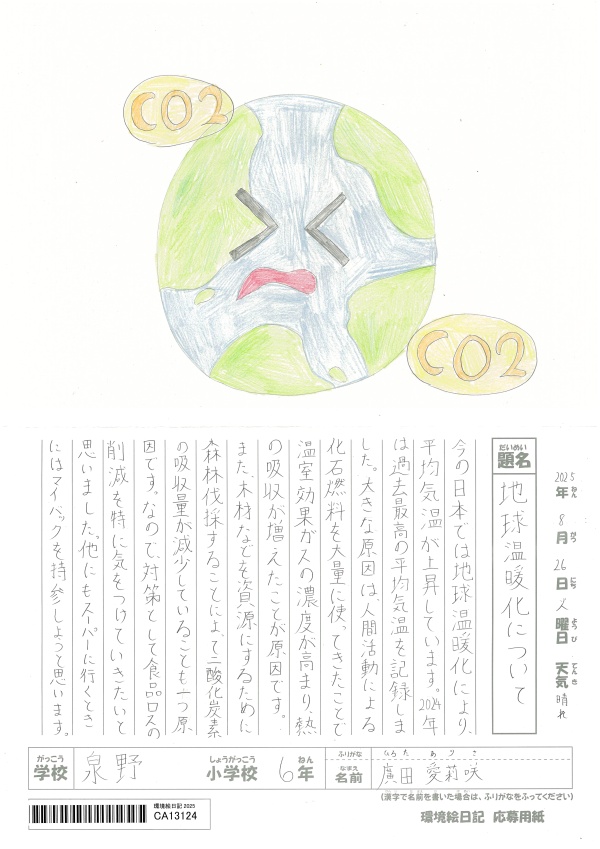 CO2
CO2
2025年 8月 26日 火曜日 天気 晴れ
ねん がつ にち ようび てんき
だいめい
題名 地球温暖化について
今の日本では地球温暖化により、
平均気温が上昇しています。2024年
は過去最高の平均気温を記録しま
した。大きな原因は、人間活動による
化石燃料を大量に使ってきたことで
温室効果ガスの濃度が高まり、熱
の吸収が増えたことが原因です。
また、木材などを資源にするために
森林伐採することによって二酸化炭素
の吸収量が減少していることも一つ原
因です。なので、対策として食品ロスの
削減を特に気をつけていきたいと
思いました。他にもスーパーに行くとき
にはマイバックを持参しようと思います。
がっこう しょうがっこう ねん ふりがな ひろた ありさ
学校 泉野 小学校 6年 なまえ 名前 廣田 愛莉咲
(漢字で名前を書いた場合は、ふりがなをふってください)
環境絵日記 2025
CA13124
環境絵日記 応募用紙